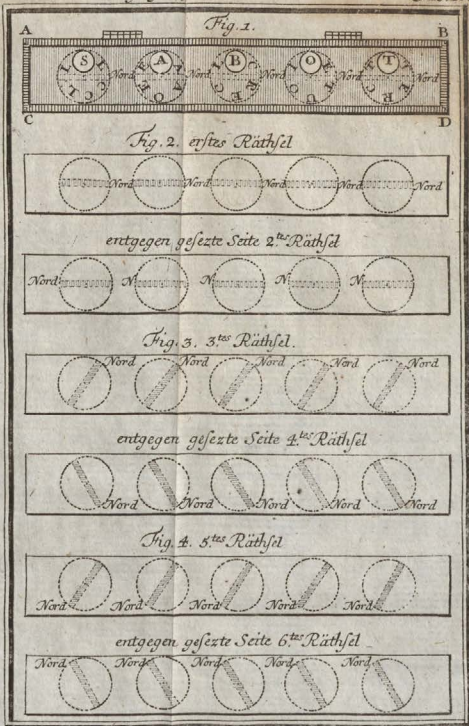 Fig. 1.
A B
S A B O T
Nord Nord Nord Nord Nord
C D
Fig. 2. erstes Räthsel
Nord Nord Nord Nord Nord
entgegen gesezte Seite 2.tes Räthsel
Nord N N N N
Fig. 3. 3.tes Räthsel.
Nord Nord Nord Nord Nord
entgegen gesezte Seite 4.tes Räthsel
Nord Nord Nord Nord Nord
Fig. 4. 5.tes Räthsel
Nord Nord Nord Nord Nord
entgegen gesezte Seite 6.tes Räthsel
Nord Nord Nord Nord Nord